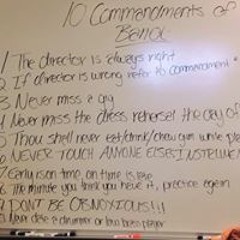 10 Commandments of
Band
1 The director is always right
2 If director is wrong refer to commandment
3 Never miss a gig
4 Never miss the dress rehersel the day of
5 Thou shell never eat/drink/chew gum while
6 NEVER TOUCH ANYONE ELSE INSTRUMEN
7 Early is on time, on time is late
8 The minute you think you have it, practice again
9 DON'T BE OBNOXIOUS!!!
Never date a drummer or low brass player